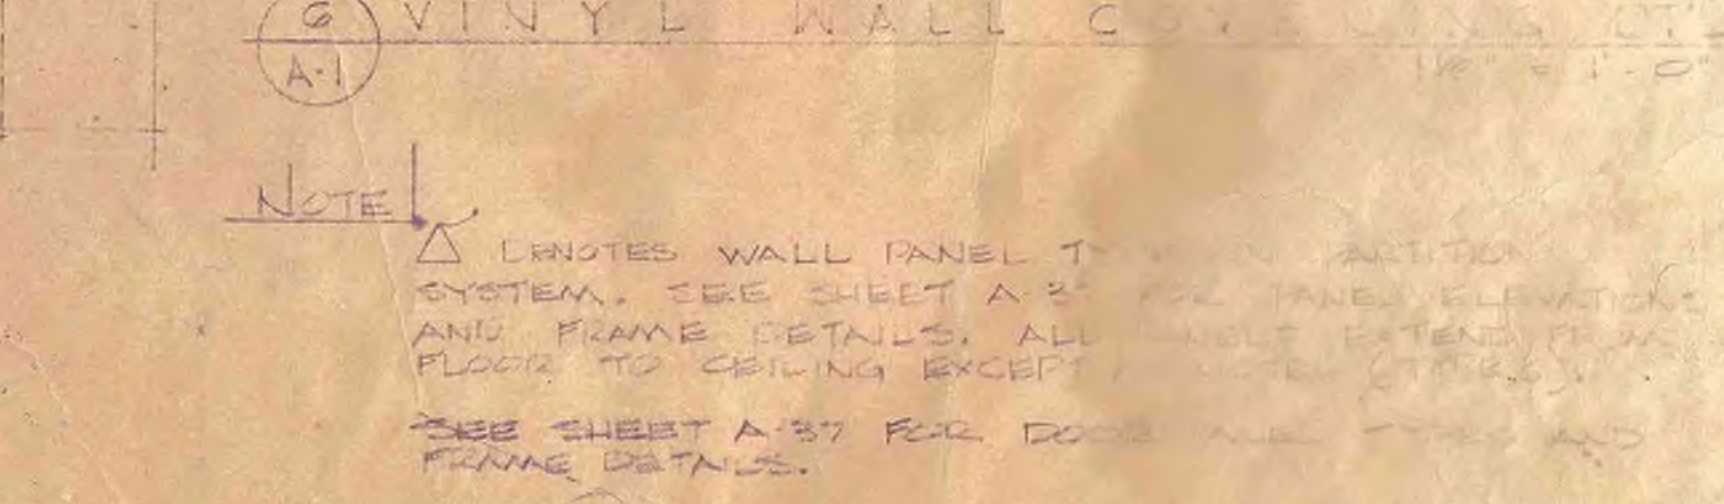 6 VINYL WALL COVERING DT'L
A-1
1½" = 1'-0"
NOTE
△ DENOTES WALL PANEL IN PARTITION
SYSTEM. SEE SHEET A-37 FOR PANEL ELEVATIONS
AND FRAME DETAILS. ALL PANELS EXTEND FROM
FLOOR TO CEILING EXCEPT NOTED
SEE SHEET A-37 FOR DOOR TYPES AND
FRAME DETAILS.